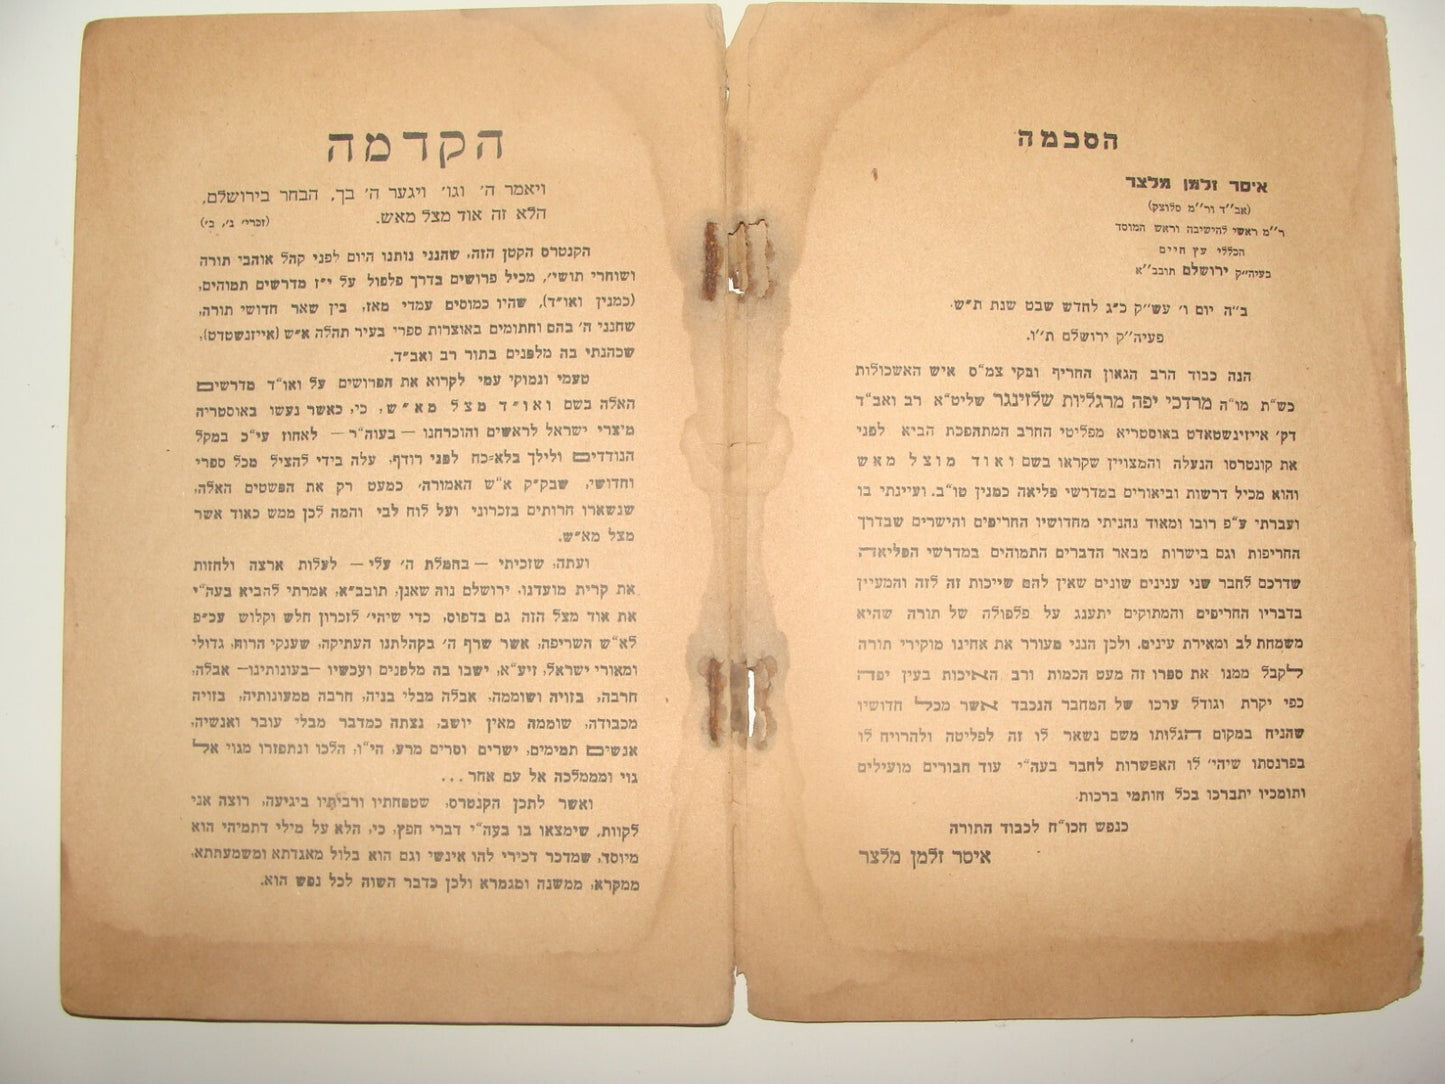 הסכמה
איסר זלמן מלצר
(אב״ד ור״מ סלוצק)
ר״מ ראשי להישיבה וראש המוסד
הכללי עץ חיים
בעיה״ק ירושלם תובב״א
ב״ה יום ו׳ עש״ק כ״ג לחדש שבט שנת ת״ש.
פעיה״ק ירושלם ת״ו.
הנה כבוד הרב הגאון החריף ובקי צמ״ס איש האשכולות
כש״ת מו״ה מרדכי יפה מרגליות שלזינגר שליט״א רב ואב״ד
דק׳ אייזינשטאדט באוסטריא מפליטי החרב המתהפכת הביא לפני
את קונטרסו הנעלה והמצויין שקראו בשם ואוד מוצל מאש
והוא מכיל דרשות וביאורים במדרשי פליאה כמנין טו״ב. ועיינתי בו
ועברתי ע״פ רובו ומאוד נהניתי מחדושיו החריפים והישרים שבדרך
החריפות וגם בישרות מבאר הדברים התמוהים במדרשי הפליאה
שדרכם לחבר שני ענינים שונים שאין להם שייכות זה לזה והמעיין
בדבריו החריפים והמתוקים יתענג על פלפולה של תורה שהיא
משמחת לב ומאירת עינים. ולכן הנני מעורר את אחינו מוקירי תורה
לקבל ממנו את ספרו זה מעט הכמות ורב האיכות בעין יפה
כפי יקרת וגודל ערכו של המחבר הנכבד אשר מכל חדושיו
שהניח במקום הגלותו משם נשאר לו זה לפליטה ולהרויח לו
בפרנסתו שיהי׳ לו האפשרות לחבר בעה״י עוד חבורים מועילים
ותומכיו יתברכו בכל חותמי ברכות.
כנפש חכו״ח לכבוד התורה
איסר זלמן מלצר
הקדמה
ויאמר ה׳ וגו׳ ויגער ה׳ בך, הבחר בירושלם,
הלא זה אוד מצל מאש. (זכרי׳ ג׳, ב׳)
הקנטרס הקטן הזה, שהנני נותנו היום לפני קהל אוהבי תורה
ושוחרי תושי׳, מכיל פרושים בדרך פלפול על י״ז מדרשים תמוהים,
(כמנין ואו״ד), שהיו כמוסים עמדי מאז, בין שאר חדושי תורה,
שחנני ה׳ בהם וחתומים באוצרות ספרי בעיר תהלה א״ש (אייזנשטדט),
שכהנתי בה מלפנים בתור רב ואב״ד.
טעמי ונמוקי עמי לקרוא את הפרושים על ואו״ד מדרשים
האלה בשם ואו״ד מצל מא״ש, כי, כאשר נעשו באוסטריה
מיצרי ישראל לראשים והוכרחנו — בעוה״ר — לאחוז עי״כ במקל
הנודדים ולילך בלא־כח לפני רודף, עלה בידי להציל מכל ספרי
וחדושי, שבק״ק א״ש האמורה׳ כמעט רק את הפשטים האלה,
שנשארו חרותים בזכרוני ועל לוח לבי והמה לכן ממש כאוד אשר
מצל מא״ש.
ועתה, שזכיתי — בחמלת ה׳ עלי — לעלות ארצה ולחזות
את קרית מועדנו, ירושלם נוה שאנן, תובב״א, אמרתי להביא בעה״י
את אוד מצל הזה גם בדפוס, כדי שיהי׳ לזכרון חלש וקלוש עכ״פ
לא״ש השריפה, אשר שרף ה׳ בקהלתנו העתיקה, שענקי הרוח, גדולי
ומאורי ישראל, זיע״א, ישבו בה מלפנים ועכשיו —בעונותינו— אבלה,
חרבה, בזויה ושוממה, אבלה מבלי בניה, חרבה ממעונותיה, בזויה
מכבודה, שוממה מאין יושב, נצתה כמדבר מבלי עובר ואנשיה,
אנשים תמימים, ישרים וסרים מרע, הי״ו, הלכו ונתפזרו מגוי אל
גוי ומממלכה אל עם אחר...
ואשר לתכן הקנטרס, שטפחתיו ורביתיו ביגיעה, רוצה אני
לקוות, שימצאו בו בעה״י דברי חפץ, כי, הלא על מילי דתמיהי הוא
מיוסד, שמדכר דכירי להו אינשי וגם הוא בלול מאגדתא ומשמעתתא,
ממקרא, ממשנה ומגמרא ולכן כדבר השוה לכל נפש הוא.